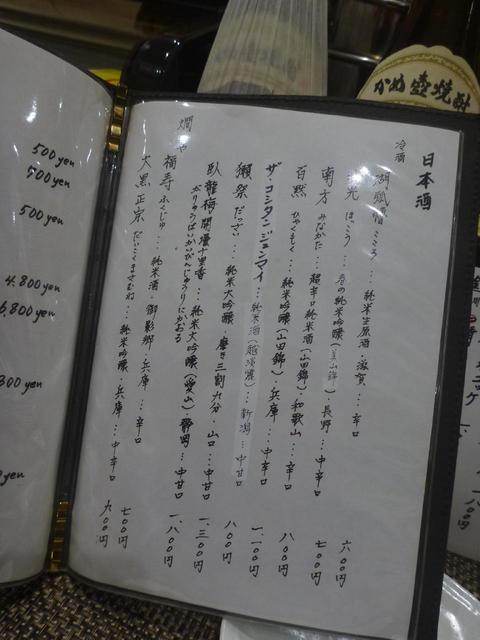 かめ壺焼酎
日本酒
冷酒
こころ…純米生原酒・滋賀…辛口 六〇〇円
ほっこう…春の純米吟醸（美山錦）・長野…中辛口 七〇〇円
南方 みなかた…超辛口純米酒（山田錦）・和歌山…辛口 八〇〇円
百黙 ひゃくもく…純米吟醸（山田錦）・兵庫…中辛口 一、一〇〇円
ザ・コシタンタンジュンマイ…純米酒（越淡麗）…新潟…中甘口 八〇〇円
獺祭 だっさい…純米大吟醸・磨き三割九分・山口…中甘口 一、三〇〇円
臥龍梅開壜十里香…純米大吟醸（愛山）・静岡…中甘口 一、八〇〇円
がりゅうばいかいびんじゅうりにかおる
燗
福寿 ふくじゅ…純米酒・御影郷・兵庫…辛口 七〇〇円
大黒正宗 だいこくまさむね…純米吟醸・兵庫…中辛口 九〇〇円
500yen
500yen
500yen
4.800yen
6.800yen
300yen
yen